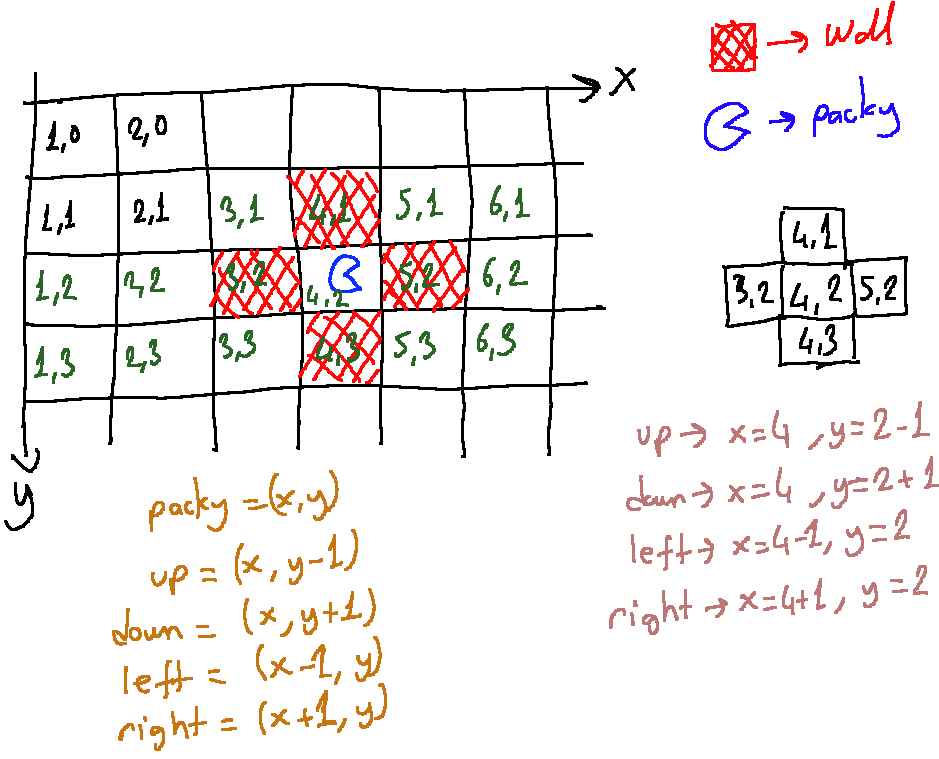 → wall
→ packy
x
1,0 2,0
1,1 2,1 3,1 4,1 5,1 6,1
1,2 2,2 3,2 4,2 5,2 6,2
1,3 2,3 3,3 4,3 5,3 6,3
y
4,1
3,2 4,2 5,2
4,3
packy = (x,y)
up = (x, y-1)
down = (x, y+1)
left = (x-1, y)
right = (x+1, y)
up → x=4 , y=2-1
down → x=4 , y=2+1
left → x=4-1, y=2
right → x=4+1, y=2